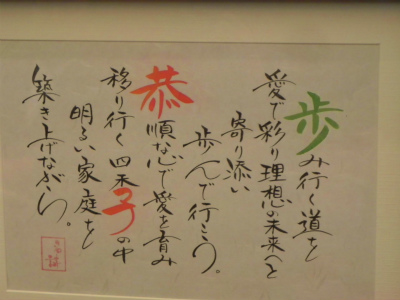 歩み行く道を
愛で彩り理想の未来へと
寄り添い
歩んで行こう。
恭順な心で愛を育み
移り行く四季の中
明るい家庭を
築き上げながら。